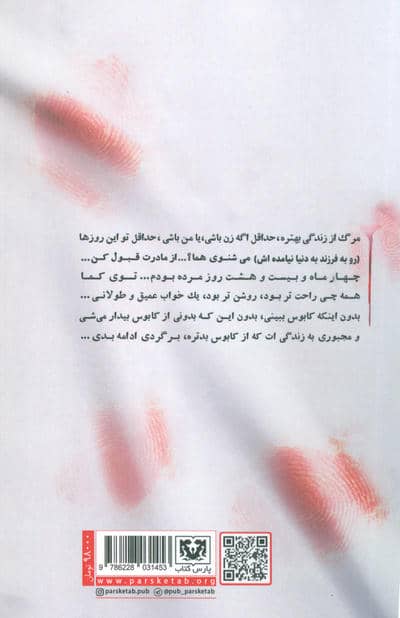 مرگ از زندگی بهتره، حداقل اگه زن باشی، یا من باشی، حداقل تو این روزها
(رو به فرزند به دنیا نیامده اش) می شنوی هما؟... از مادرت قبول کن...
چهار ماه و بیست و هشت روز مرده بودم... توی کما
همه چی راحت تر بود، روشن تر بود، یك خواب عمیق و طولانی ...
بدون اینکه کابوس ببینی، بدون این که بدونی از کابوس بیدار می‌شی
و مجبوری به زندگی ات که از کابوس بدتره، برگردی ادامه بدی ...
۹۸۰۰۰ تومان
9 786228 031453
پارس کتاب
www.parsketab.org
parsketab.pub
@pub_parsketab